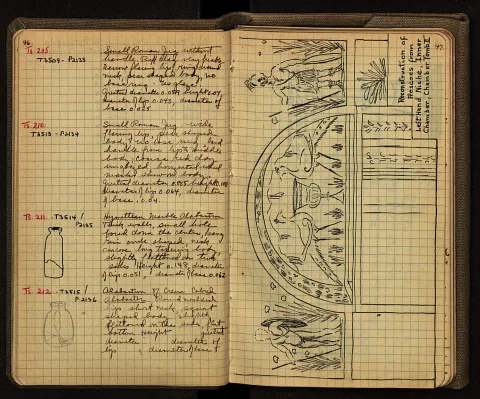 46
TS. 205
T3509 - P2133
Small Roman Jug without
handle. Buff clay
body, no
base ring
Greatest diameter 0.054 height 0.09
diameter of lip 0.043, diameter of
base 0.025.
TS. 210.
T3513 - P2134
Small Roman Jug wide
flaring lip, shaped
body, no base ring and
handle from lip to middle
body, coarse red clay
unglazed
marks show on body.
greatest diameter height
diameter of lip 0.064, diameter
of base, 0.04.
TS. 211. T3514 /
P2135
Hymettean Marble Alabastron
Thick walls, small hole
bored down the center, heavy
rim shaped neck
long tapering body
slightly flattened on two
sides. Height 0.148, diameter
of lip 0.031, diameter of base 0.062
TS. 212. T3515 /
P2136
Alabastron of Cream Colored
Alabaster. Round
lip short neck, squat
shaped body, slightly
flattened on the sides, flat
bottom Height greatest
diameter diameter of
lip , diameter of base
47
Reconstruction of
Frescoes from
Left Hand Niche, Inner
Chamber, Chamber Tomb II